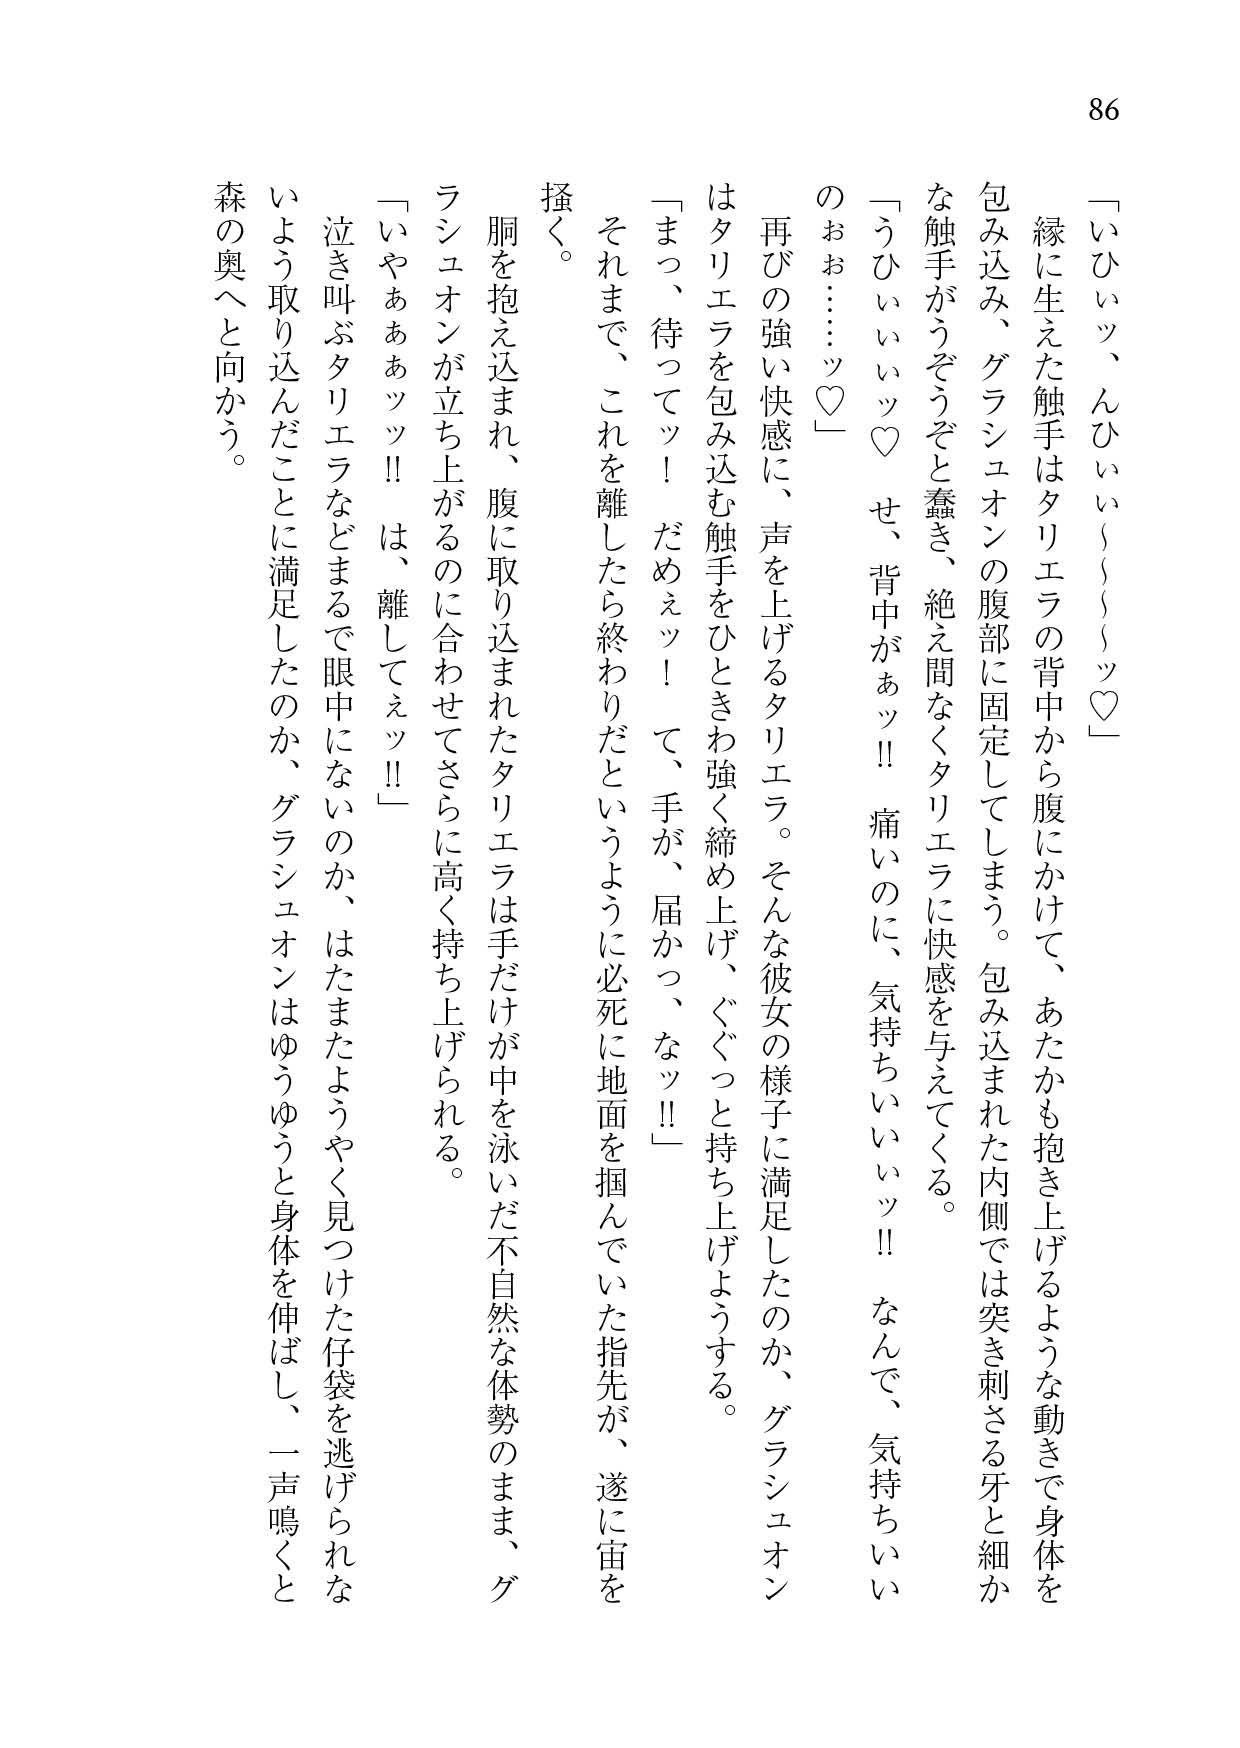 86
「いひぃッ、んひぃぃ～～～～ッ♡」
　縁に生えた触手はタリエラの背中から腹にかけて、あたかも抱き上げるような動きで身体を
包み込み、グラシュオンの腹部に固定してしまう。包み込まれた内側では突き刺さる牙と細か
な触手がうぞうぞと蠢き、絶え間なくタリエラに快感を与えてくる。
「うひぃぃぃぃッ♡　せ、背中がぁッ!!　痛いのに、気持ちいいぃッ!!　なんで、気持ちいい
のぉぉ……ッ♡」
　再びの強い快感に、声を上げるタリエラ。そんな彼女の様子に満足したのか、グラシュオン
はタリエラを包み込む触手をひときわ強く締め上げ、ぐぐっと持ち上げようする。
「まっ、待ってッ！　だめぇッ！　て、手が、届かっ、なッ!!」
　それまで、これを離したら終わりだというように必死に地面を掴んでいた指先が、遂に宙を
掻く。
　胴を抱え込まれ、腹に取り込まれたタリエラは手だけが中を泳いだ不自然な体勢のまま、グ
ラシュオンが立ち上がるのに合わせてさらに高く持ち上げられる。
「いやぁぁぁッッ!!　は、離してぇッ!!」
　泣き叫ぶタリエラなどまるで眼中にないのか、はたまたようやく見つけた仔袋を逃げられな
いよう取り込んだことに満足したのか、グラシュオンはゆうゆうと身体を伸ばし、一声鳴くと
森の奥へと向かう。